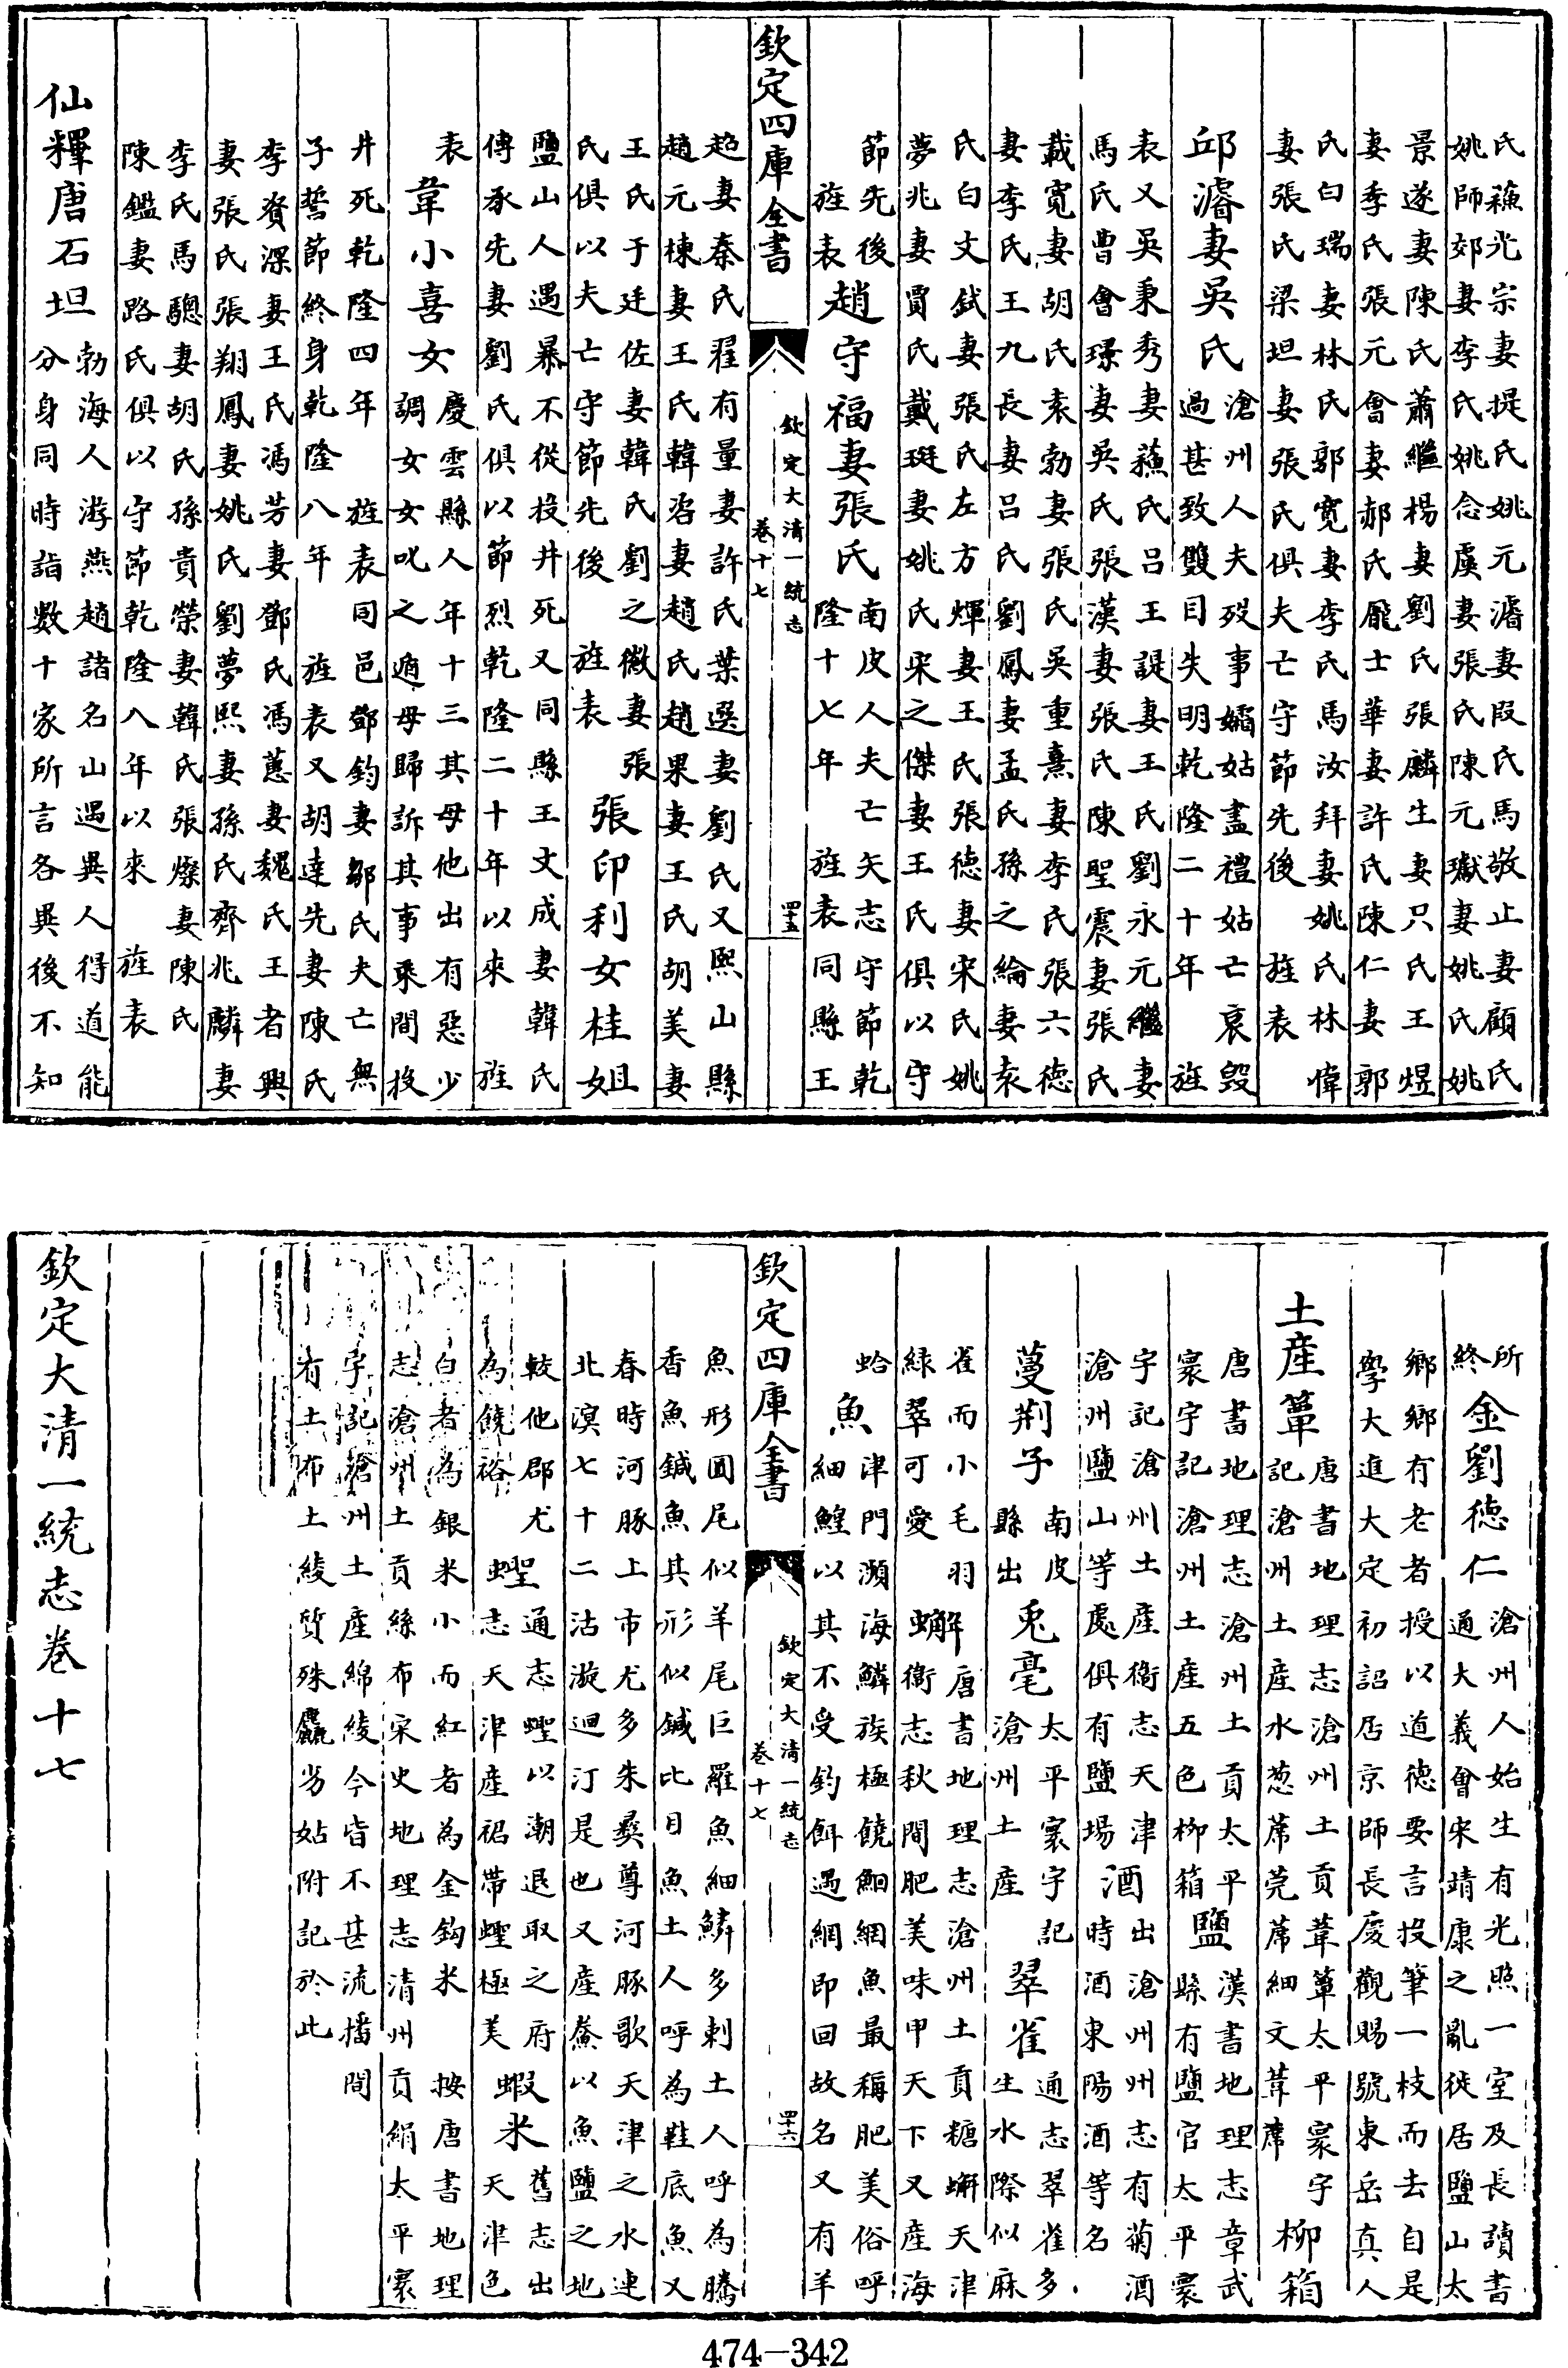 氏蘓光宗妻提氏姚元濬妻叚氏馬敬止妻顧氏
姚師郊妻李氏姚念虞妻張氏陳元瓛妻姚氏姚
景遂妻陳氏蕭繼楊妻劉氏張麟生妻只氏王煜
妻季氏張元會妻郝氏龎士華妻許氏陳仁妻郭
氏白瑞妻林氏郭寛妻李氏馬汝拜妻姚氏林偉
妻張氏梁坦妻張氏俱夫亡守節先後 旌表
邱濬妻吳氏 滄州人夫歿事孀姑盡禮姑亡哀毁
過甚致雙目失明乾隆二十年 旌
表又吳秉秀妻蘓氏吕王諟妻王氏劉永元繼妻
馬氏曹會璟妻吳氏張漢妻張氏陳聖震妻張氏
載寛妻胡氏袁勃妻張氏吳重熹妻李氏張六徳
妻李氏王九長妻吕氏劉鳳妻孟氏孫之綸妻袁
氏白文鉽妻張氏左方煇妻王氏張徳妻宋氏姚
夢兆妻賈氏戴珽妻姚氏宋之傑妻王氏俱以守
節先後
旌表 趙守福妻張氏 南皮人夫亡矢志守節乾
隆十七年 旌表同縣王
欽定四庫全書
欽定大清一統志
卷十七
四十五
超妻秦氏翟有量妻許氏葉選妻劉氏又熙山縣
趙元棟妻王氏韓咨妻趙氏趙果妻王氏胡美妻
王氏于廷佐妻韓氏劉之徽妻張
氏俱以夫亡守節先後 旌表 張印利女桂姐
鹽山人遇暴不從投井死又同縣王文成妻韓氏
傅承先妻劉氏俱以節烈乾隆二十年以來 旌
表 韋小喜女 慶雲縣人年十三其母他出有惡少
調女女叱之遁母歸訴其事乘間投
井死乾隆四年 旌表同邑鄧鈞妻鄒氏夫亡無
子誓節終身乾隆八年 旌表又胡達先妻陳氏
李資深妻王氏馮芳妻鄧氏馮蕙妻魏氏王者興
妻張氏張翔鳳妻姚氏劉夢熙妻孫氏齊兆麟妻
李氏馬驄妻胡氏孫貴榮妻韓氏張燦妻陳氏
陳鑑妻路氏俱以守節乾隆八年以來 旌表
仙釋唐石坦 勃海人游燕趙諸名山遇異人得道能
分身同時詣數十家所言各異後不知
所
終 金劉徳仁 滄州人始生有光照一室及長讀書
通大義會宋靖康之亂徙居鹽山太
鄉鄉有老者授以道德要言投筆一枝而去自是
學大進大定初詔居京師長慶觀賜號東岳真人
土產 葦 唐書地理志滄州土貢葦簟太平寰宇
記滄州土産水葱蓆莞蓆細文葦蓆 柳箱
唐書地理志滄州土貢太平
寰宇記滄州土産五色柳箱 鹽 漢書地理志章武
縣有鹽官太平寰
宇記滄州土産衞志天津
滄州鹽山等處俱有鹽場 酒 出滄州州志有菊酒
時酒東陽酒等名
蔓荆子 南皮
縣出 兎毫 太平寰宇記
滄州土産 翠雀 通志翠雀多
生水際似麻
雀而小毛羽
緑翠可愛 蠏 唐書地理志滄州土貢糖蠏天津
衞志秋間肥美味甲天下又産海
蛤 魚 津門瀕海鱗族極饒鮰網魚最稱肥美俗呼
細鰉以其不受釣餌遇網即回故名又有羊
欽定四庫全書
欽定大清一統志
卷十七
四十六
魚形圓尾似羊尾巨羅魚細鱗多刺土人呼為騰
香魚鍼魚其形似鍼比目魚土人呼為鞋底魚又
春時河豚上市尤多朱彝尊河豚歌天津之水連
北溟七十二沽漩迴汀是也又産鮝以魚鹽之地
較他郡尤
為饒裕 蟶 通志蟶以潮退取之府
志天津産裙帶蟶極美 蝦米 舊志出
天津色
白者為銀米小而紅者為金鈎米 按唐書地理
志滄州土貢絲布宋史地理志清州貢絹太平寰
宇記滄州土産綿綾今皆不甚流播間
有土布土綾質殊麤劣姑附記於此
欽定大清一統志卷十七
474—342